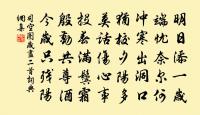 明日添一歲
端忧奈尔何
冲寒出洞口
猶校夕陽多
莫話傷心事
投春滿鬢霜
殷勤共尊酒
今歲只殘陽
司空圖歲盡二首詞典
網集